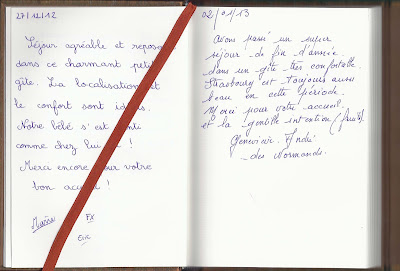 27/12/12
Séjour agréable et repos
dans ce charmant petit
gîte. La localisation et
le confort sont id
Notre bébé s'est senti
comme chez lui !
Merci encore pour votre
bon accueil !
Eric
FX
02/01/13
Avons passé un super
séjour de fin d'année
dans un gîte très confortable.
Strasbourg est toujours aussi
beau en cette période.
Merci pour votre accueil
et la gentille intention (fruits)
Geneviève - André
des Normands.